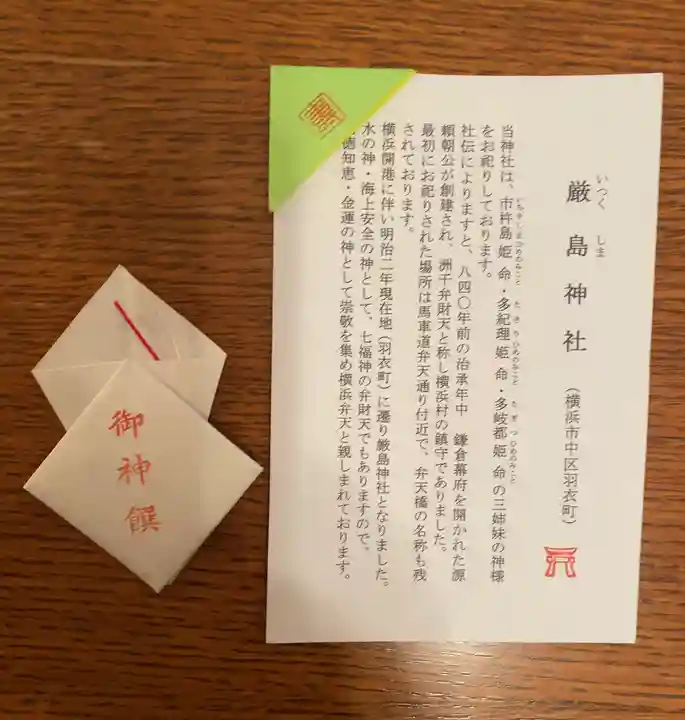 厳島神社
いつくしま
(横浜市中区羽衣町)
当神社は、市杵島姫命・多紀理姫命・多岐都姫命の三姉妹の神様
いちきしまひめのみこと
たきりひめのみこと
たぎつひめのみこと
をお祀りしております。
社伝によりますと、八四〇年前の治承年中 鎌倉幕府を開かれた源
頼朝公が創建され、洲干弁財天と称し横浜村の鎮守でありました。
最初にお祀りされた場所は馬車道弁天通り付近で、弁天橋の名称も残
されております。
横浜開港に伴い明治二年現在地(羽衣町)に遷り厳島神社となりました。
水の神・海上安全の神として、七福神の弁財天でもありますので、
徳知恵・金運の神として崇敬を集め横浜弁天と親しまれております。
御神饌